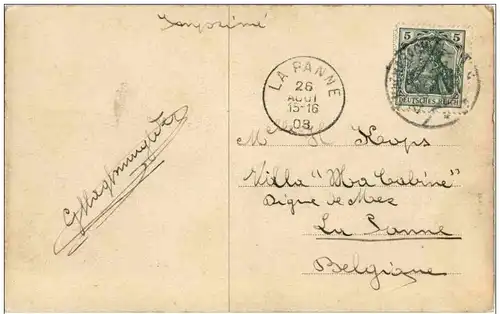 Imprimé
5 5
DEUTSCHES REICH
LA PANNE
26
AOUT
15-16
08
Mr H Kops
Villa "Ma Cabine"
Digue de Mer
La Panne
Belgique